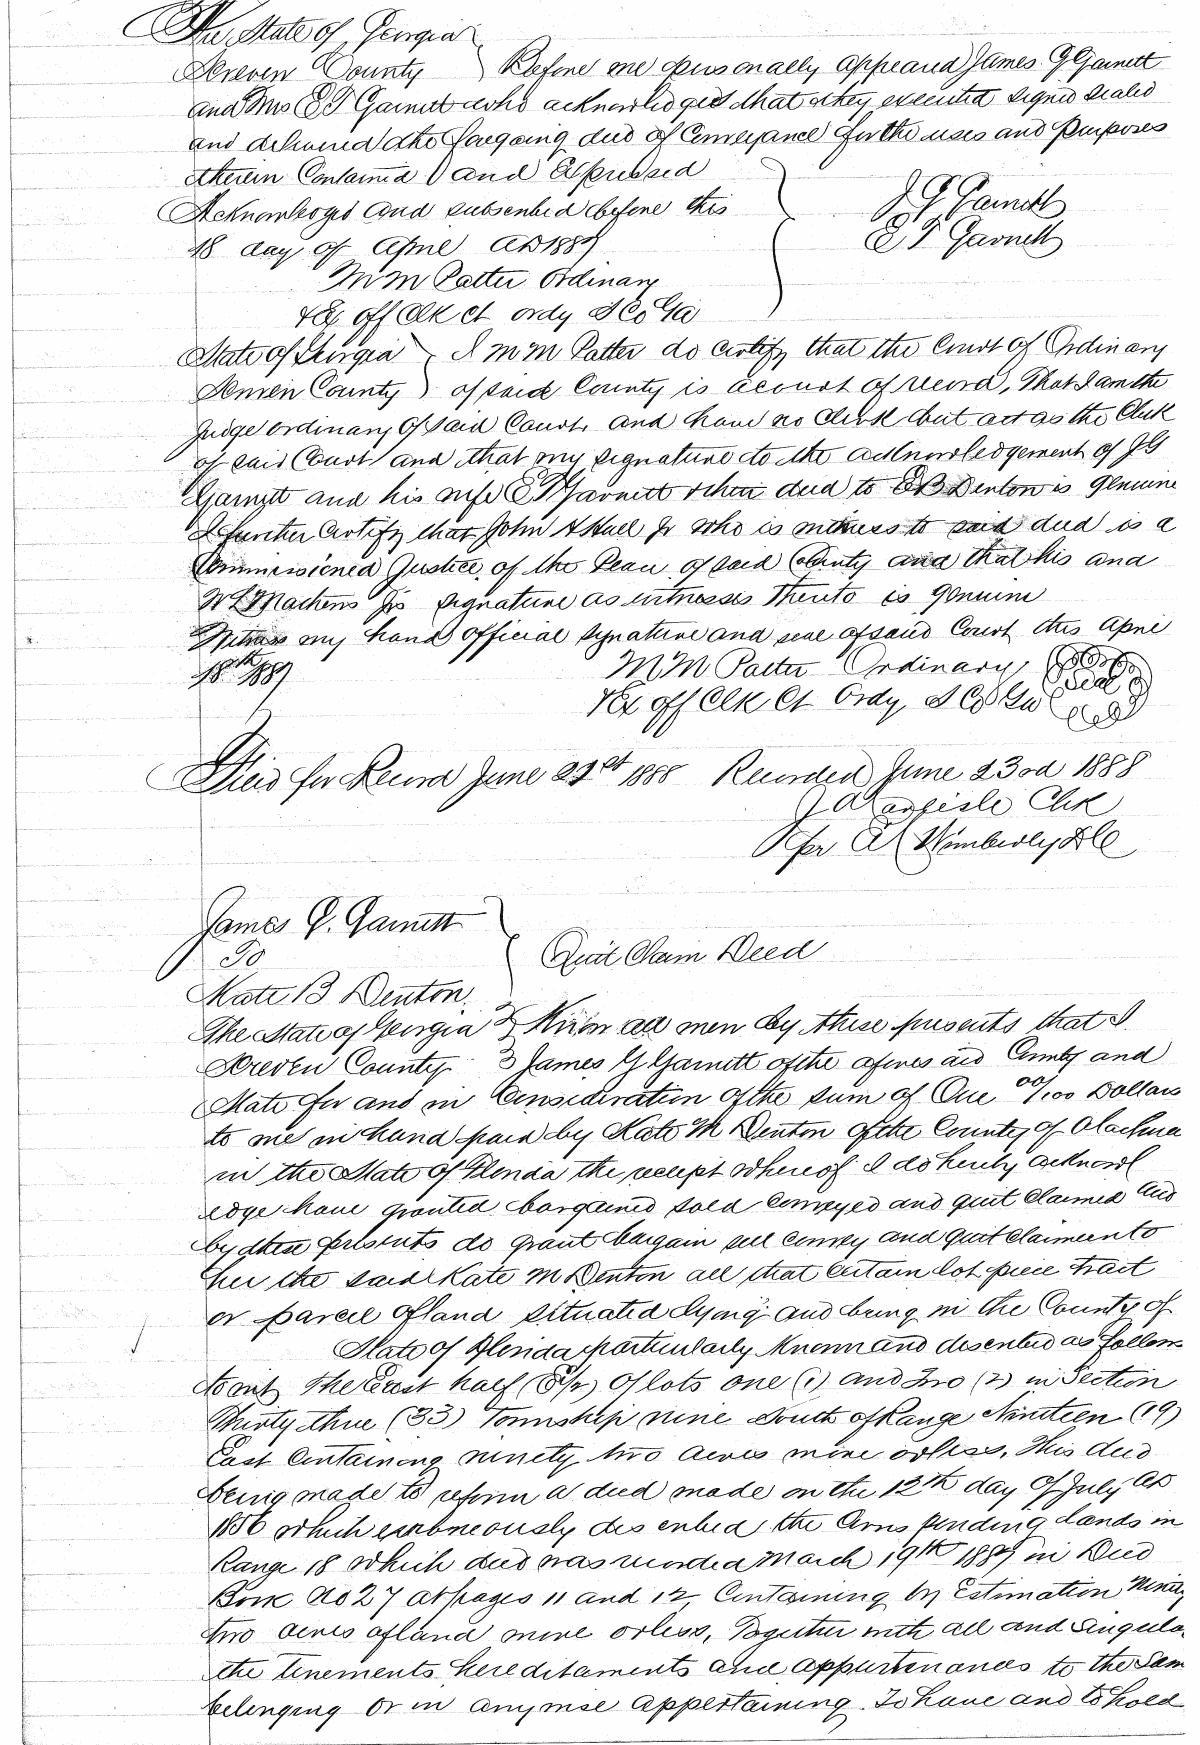 The State of Georgia
Screven County } Before me personally appeared James G Garnett
and Mrs E T Garnett who acknowledged that they executed signed sealed
and delivered the foregoing deed of Conveyance for the uses and purposes
therein Contained and Expressed
Acknowledged and subscribed before this
18 day of April AD 1887
J G Garnett
E T Garnett
M M Potter Ordinary
& Ex off Clk Ct ordy S Co Ga
State of Georgia } I M M Potter do certify that the Court of Ordinary
Screven County } of said County is a court of record, That I am the
Judge ordinary of said Court, and have no Clerk but act as the Clerk
of said Court and that my signature to the acknowledgement of J G
Garnett and his wife E T Garnett to their deed to Denton is genuine
I further Certify that John Jr who is witness to said deed is a
Commissioned Justice of the Peace of said County and that his and
W L Mathews Jrs signature as witnesses thereto is genuine
Witness my hand official signature and seal of said Court this April
18th 1887
M M Potter Ordinary
& Ex off Clk Ct Ordy S Co Ga
Seal
Filed for Record June 21st 1888 Recorded June 23rd 1888
J A Carlisle Clk
Per Wimberly D C
James G. Garnett
To
Quit Claim Deed
Kate B Denton.
The State of Georgia } Know all men by these presents that I
Screven County } James G Garnett of the aforesaid County and
State for and in Consideration of the sum of One 00/100 Dollars
to me in hand paid by Kate M Denton of the County of Alachua
in the State of Florida the receipt whereof I do hereby acknowl
edge have granted bargained sold conveyed and quit claimed and
by these presents do grant bargain sell convey and quit claim unto
her the said Kate M Denton all that certain lot piece tract
or parcel of land situated lying and being in the County of
State of Florida particularly known and described as follows
to wit, The East half (E½) of lots one (1) and Two (2) in Section
Thirty three (33) Township nine South of Range Nineteen (19)
East Containing ninety two acres more or less, This deed
being made to reform a deed made on the 12th day of July AD
1886 which erroneously described the Corresponding Lands in
Range 18 which deed was recorded March 19th 1887 in Deed
Book No 27 at pages 11 and 12, Containing by Estimation Ninety
two acres of land more or less, Together with all and Singula
the tenements hereditaments and appurtenances to the Sam
belonging or in anywise appertaining. To have and to hold